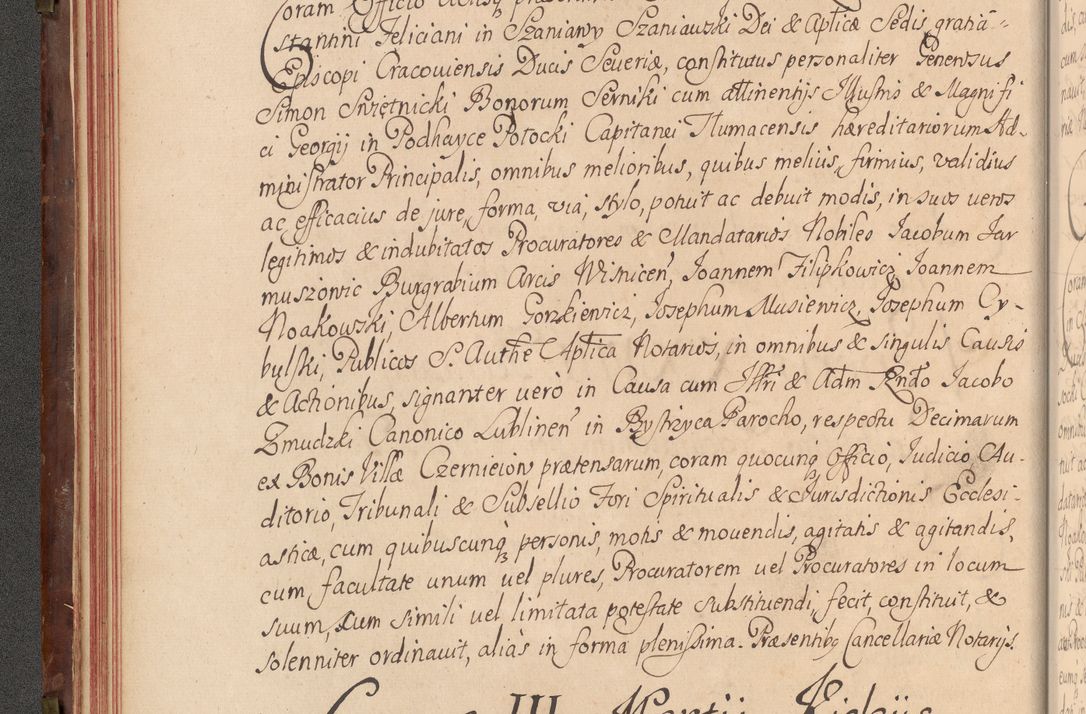 Coram Officio
stantini Feliciani in Szaniawy Szaniawski Dei & Apticæ Sedis gratia
Episcopi Cracoviensis Ducis Severiæ, constitutus personaliter Generosus
Simon Swiętnicki Bonorum Serniki cum attinentijs Illustris & Magnifi
ci Georgij in Podhayce Potocki Capitanei Tlumacensis hæreditariorum Ad-
ministrator Principalis, omnibus melioribus, quibus melius, firmius, validius
ac efficacius de jure, forma, via, stylo, potuit ac debuit modis, in suos veros
legitimos & indubitatos Procuratores & Mandatarios Nobiles Jacobum Jar
muszowic Burgrabium Arcis Wisnicen, Joannem Filipkowicz, Joannem
Noakowski, Albertum Gorzkiewicz, Josephum Musiewicz, Josephum Cy-
bulski, Publicos S. Authe Aptica Notarios, in omnibus & singulis Causis
& Actionibus, signanter vero in Causa cum Jllri & Adm Rndo Jacobo
Zmudzki Canonico Lublinen in Bystrzyca Parocho, respectu Decimarum
ex Bonis Villæ Czerniciow prætensarum, coram quocunq3 Officio, Judicio, Au-
ditorio, Tribunali & Subsellio Fori Spiritualis & Jurisdictionis Ecclesi-
asticæ, cum quibuscunq3 personis, motis & movendis, agitatis & agitandis,
cum facultate unum vel plures, Procuratorem vel Procuratores in locum
suum, cum simili vel limitata potestate substituendi, fecit, constituit, &
solenniter ordinavit, alias in forma plenissima. Præsentibq Cancellariæ Notarijs.
III Martij